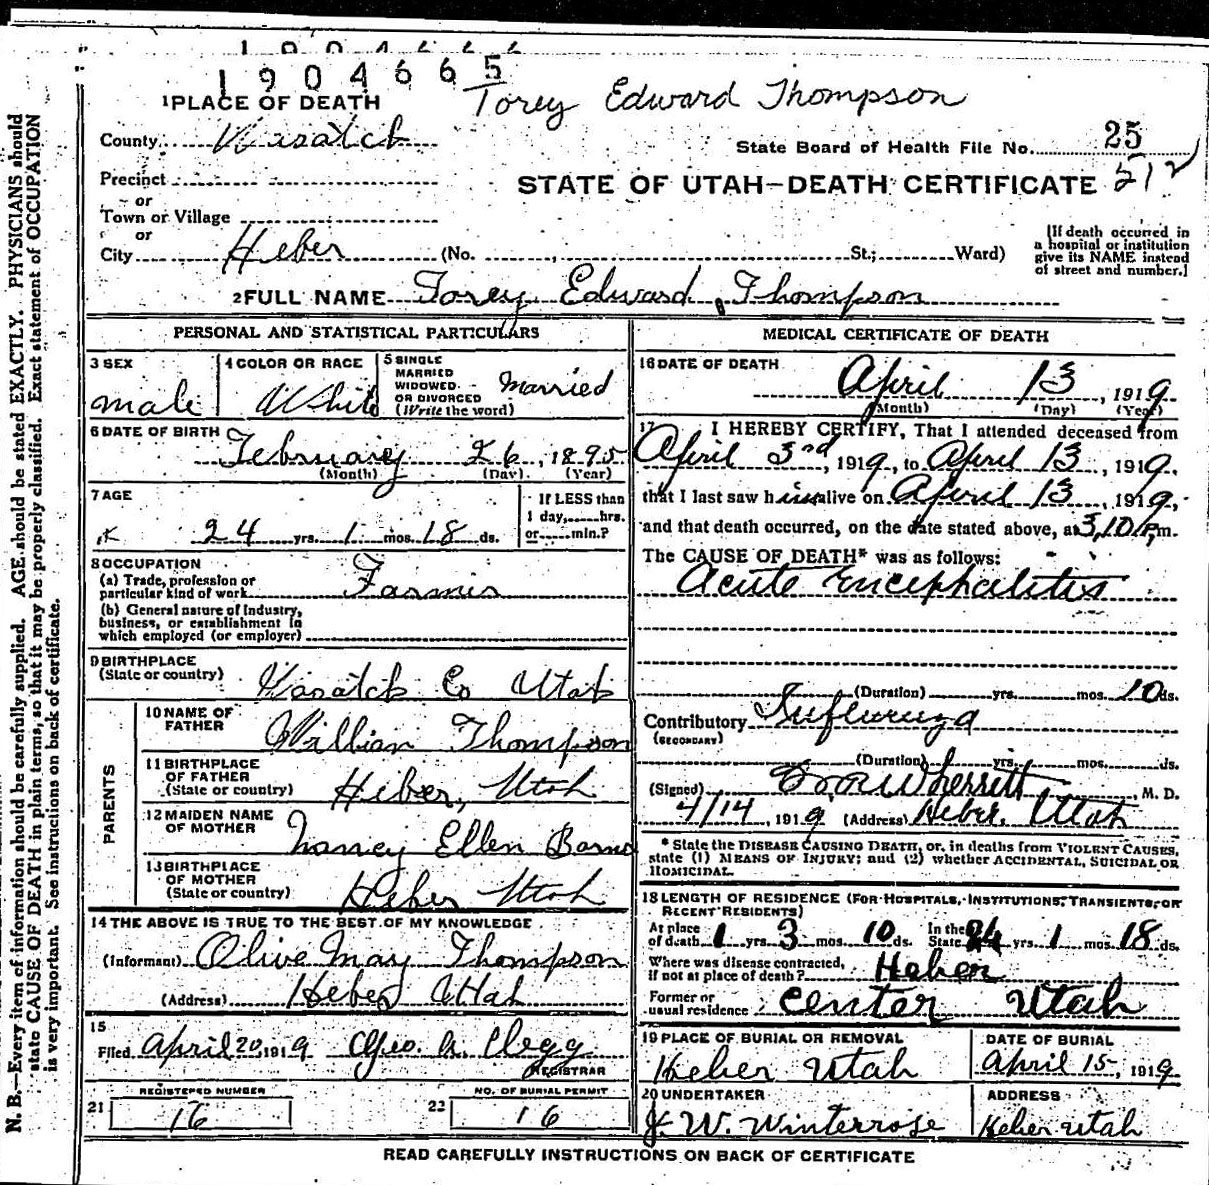 1904665
Torey Edward Thompson
1 PLACE OF DEATH
County Wasatch
State Board of Health File No. 25
Precinct
STATE OF UTAH—DEATH CERTIFICATE 512
or
Town or Village
or
City Heber (No. , St.; Ward)
[If death occurred in
a hospital or institution
give its NAME instead
of street and number.]
2 FULL NAME Torey Edward Thompson
PERSONAL AND STATISTICAL PARTICULARS
3 SEX
male
4 COLOR OR RACE
White
5 SINGLE
MARRIED
WIDOWED
OR DIVORCED
(Write the word)
Married
6 DATE OF BIRTH
February 26, 1895
(Month) (Day) (Year)
7 AGE
24 yrs. 1 mos. 18 ds.
If LESS than
1 day, hrs.
or min.?
8 OCCUPATION
(a) Trade, profession or
particular kind of work Farmer
(b) General nature of Industry,
business, or establishment in
which employed (or employer)
9 BIRTHPLACE
(State or country) Wasatch Co Utah
PARENTS
10 NAME OF
FATHER William Thompson
11 BIRTHPLACE
OF FATHER
(State or country) Heber, Utah
12 MAIDEN NAME
OF MOTHER Nancy Ellen Barns
13 BIRTHPLACE
OF MOTHER
(State or country) Heber Utah
14 THE ABOVE IS TRUE TO THE BEST OF MY KNOWLEDGE
(Informant) Olive May Thompson
(Address) Heber Utah
15
Filed April 20, 1919 Geo. A. Clegg
REGISTRAR
REGISTERED NUMBER
21 16
NO. OF BURIAL PERMIT
22 16
MEDICAL CERTIFICATE OF DEATH
16 DATE OF DEATH
April 13, 1919
(Month) (Day) (Year)
17 I HEREBY CERTIFY, That I attended deceased from
April 3rd, 1919, to April 13, 1919,
that I last saw him alive on April 13, 1919,
and that death occurred, on the date stated above, at 3,10 P.m.
The CAUSE OF DEATH* was as follows:
Acute Encephalitis
(Duration) yrs. mos. 10 ds.
Contributory Influenza
(SECONDARY)
(Duration) yrs. mos. ds.
(Signed) Wherritt, M. D.
4/14, 1919 (Address) Heber, Utah
* State the DISEASE CAUSING DEATH, or, in deaths from VIOLENT CAUSES,
state (1) MEANS OF INJURY; and (2) whether ACCIDENTAL, SUICIDAL OR
HOMICIDAL.
18 LENGTH OF RESIDENCE (FOR HOSPITALS, INSTITUTIONS, TRANSIENTS, OR
RECENT RESIDENTS)
At place
of death 1 yrs. 3 mos. 10 ds.
In the
State 24 yrs. 1 mos. 18 ds.
Where was disease contracted,
if not at place of death? Heber
Former or
usual residence Center Utah
19 PLACE OF BURIAL OR REMOVAL
Heber Utah
DATE OF BURIAL
April 15, 1919
20 UNDERTAKER
J. W. Winterrose
ADDRESS
Heber Utah
READ CAREFULLY INSTRUCTIONS ON BACK OF CERTIFICATE
N. B.—Every item of information should be carefully supplied. AGE should be stated EXACTLY. PHYSICIANS should
state CAUSE OF DEATH in plain terms, so that it may be properly classified. Exact statement of OCCUPATION
is very important. See instructions on back of certificate.